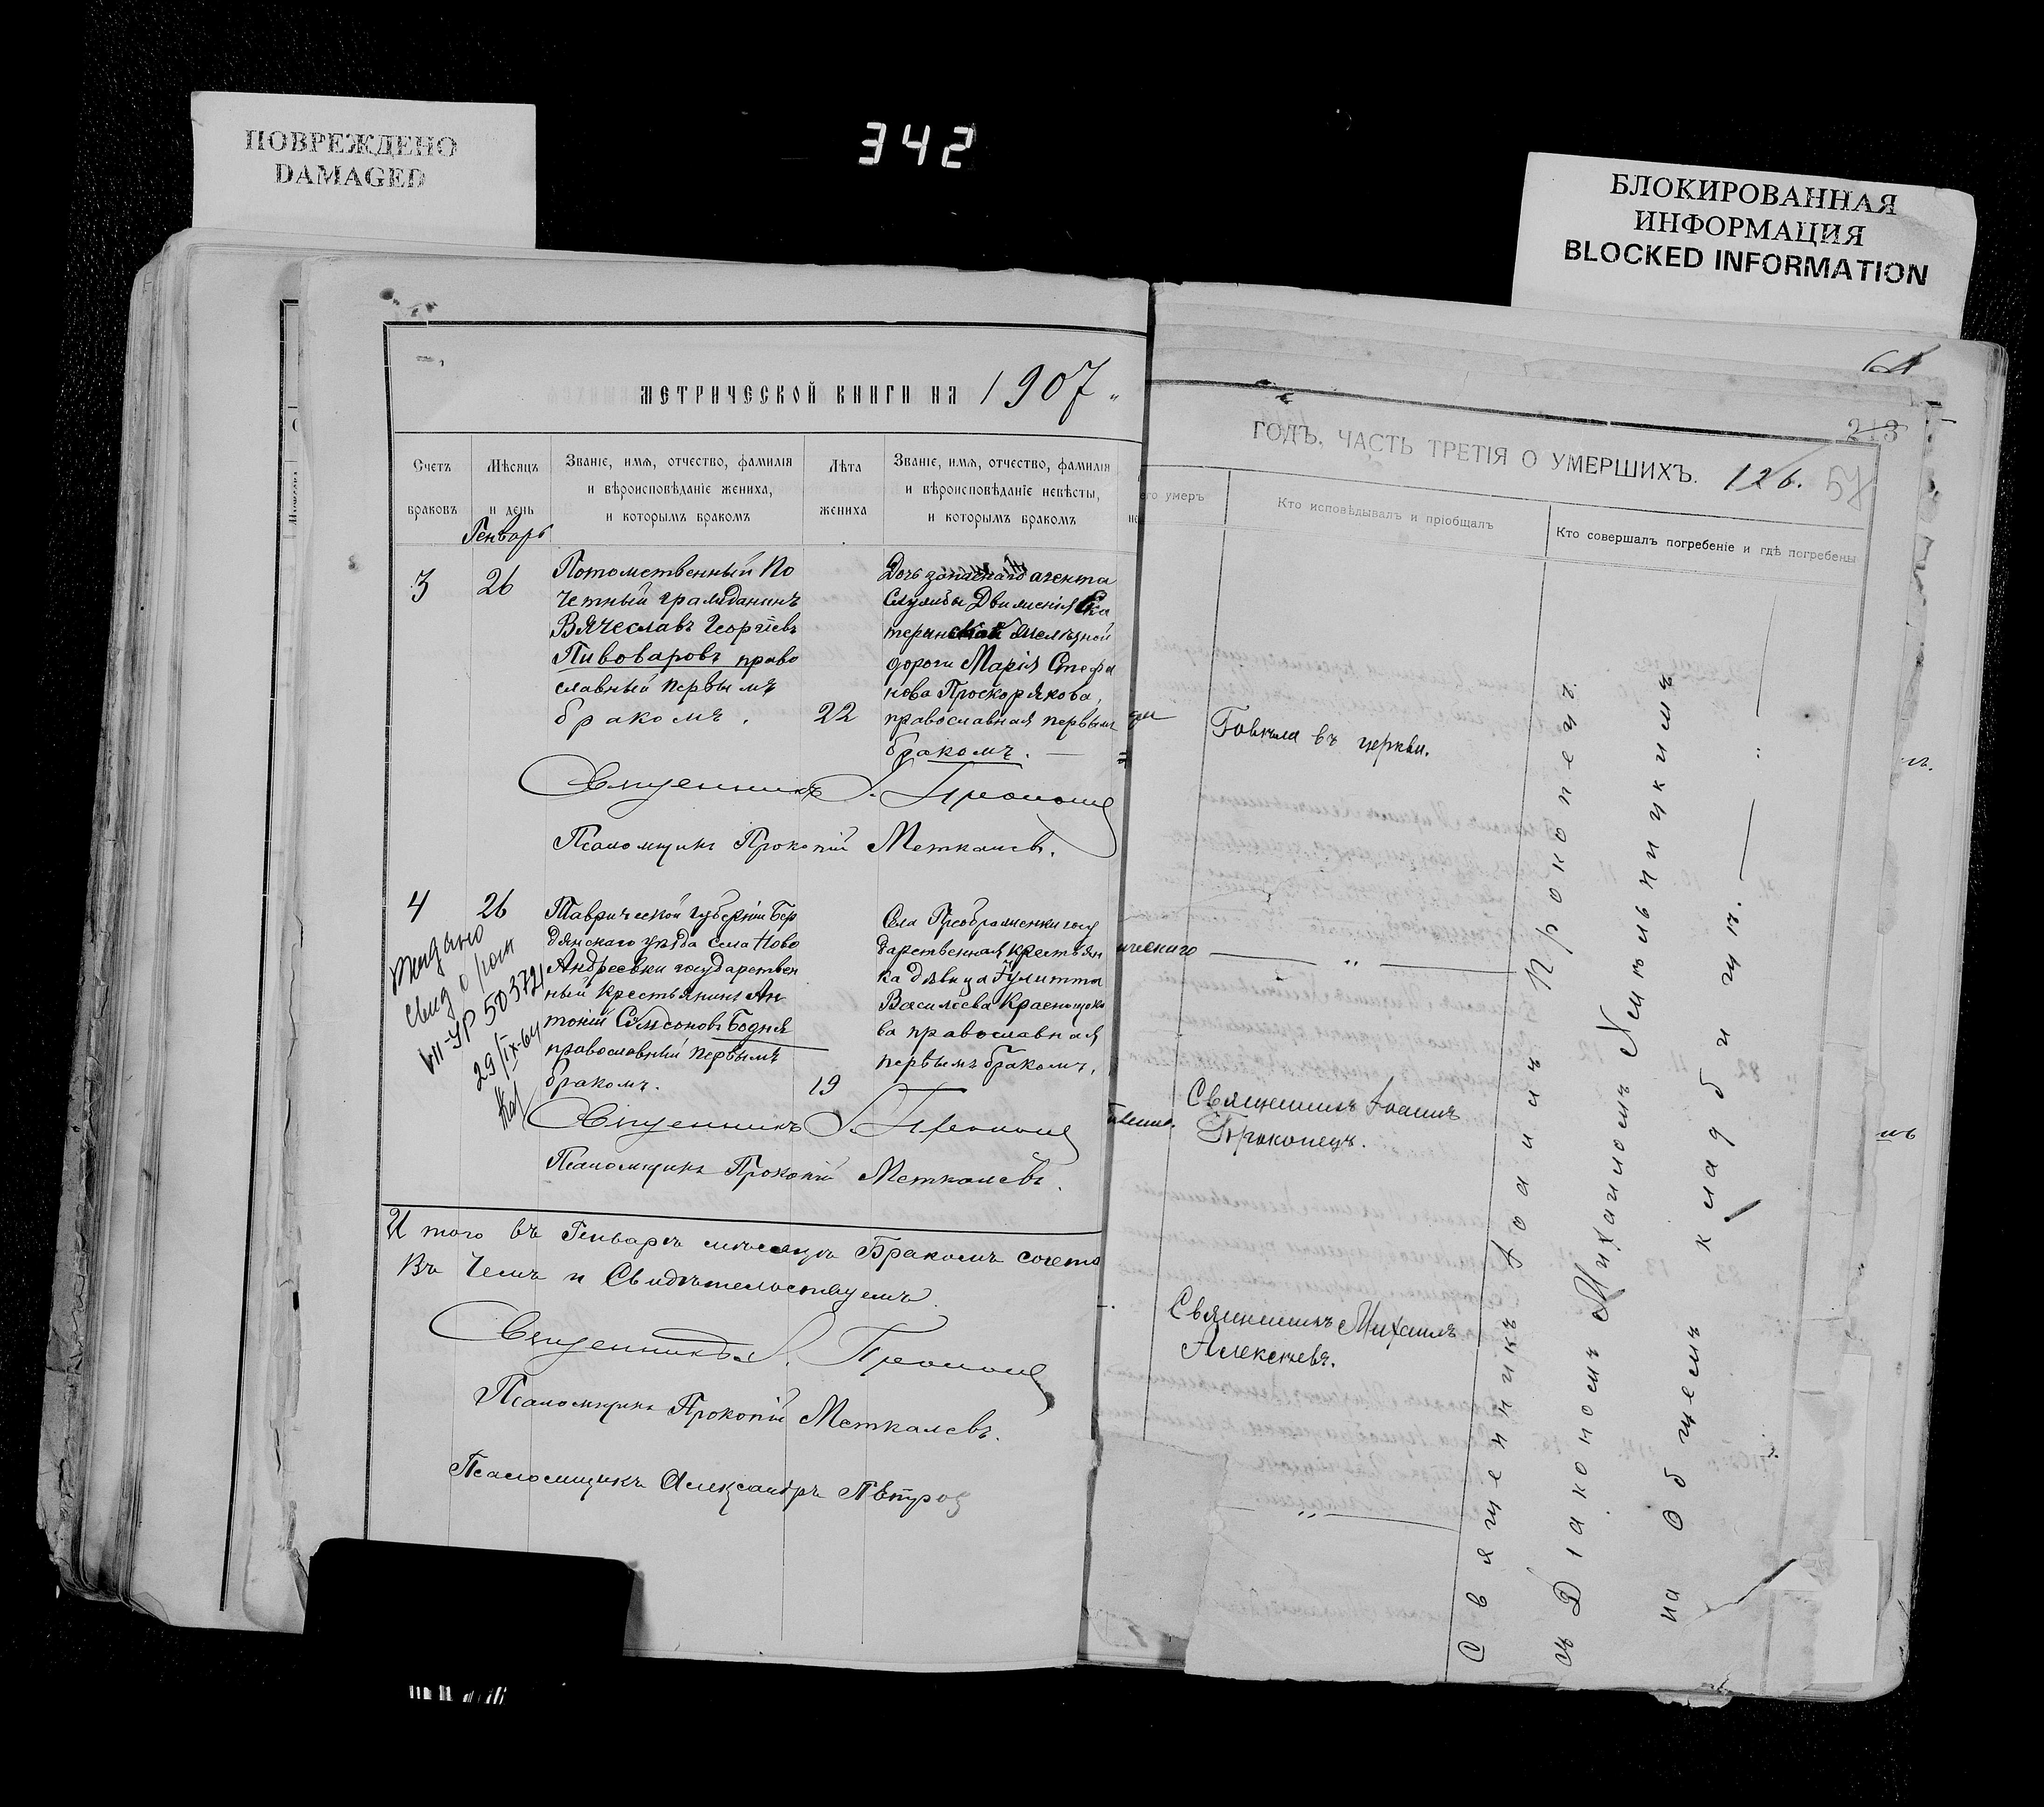 ПОВРЕЖДЕНО
DAMAGED
342
БЛОКИРОВАННАЯ
ИНФОРМАЦИЯ
BLOCKED INFORMATION
МЕТРИЧЕСКОЙ КНИГИ НА 1907
Счетъ
браковъ
Мѣсяцъ
и день
Званіе, имя, отчество, фамилія
и вѣроисповѣданіе жениха,
и которымъ бракомъ
Лѣта
жениха
Званіе, имя, отчество, фамилія
и вѣроисповѣданіе невѣсты,
и которымъ бракомъ
Генварь
3
26
Потомственный По
четный гражданинъ
Вячеславъ Георгіевъ
Пивоваровъ право
славный первымъ
бракомъ.
22
Дочь запаснаго агента
Службы Движенія Ека
теринской желѣзной
дороги Марія Стефа
нова Проскорякова,
православная первымъ
бракомъ.
Священникъ І. Прокопец
Псаломщикъ Прокопій Меткалевъ.
4
26
Таврической губерніи Бер
дянскаго уѣзда села Ново
Андреевки государствен
ный крестьянинъ Ан
тоній Самсоновъ Бодня
православный первымъ
бракомъ.
19
Села Преображенки госу
дарственная крестьян
ка дѣвица Іулитта
Васильева Краснощоко
ва православная
первымъ бракомъ,
Выдано
свид о рожд
VII-УР 503721
29/IX-64
Священникъ І. Прокопец
Псаломщикъ Прокопій Меткалевъ.
Итого въ Генварѣ мѣсяцѣ Бракомъ сочета
Въ чемъ и Свидѣтельствуемъ.
Священникъ І. Прокопец
Псаломщикъ Прокопій Меткалевъ.
Псаломщикъ Александръ
64
213
ГОДЪ, ЧАСТЬ ТРЕТІЯ О УМЕРШИХЪ. 126. 57
его умеръ
Кто исповѣдывалъ и пріобщалъ
Кто совершалъ погребеніе и гдѣ погребены
Говѣла въ церкви.
ическаго
Священникъ Іоаннъ
Прокопецъ.
Священникъ Михаилъ
Алексѣевъ.
Священникъ Іоаннъ Прокопецъ
съ Діакономъ Михаиломъ Хмѣльницкимъ
на Общемъ кладбищѣ.